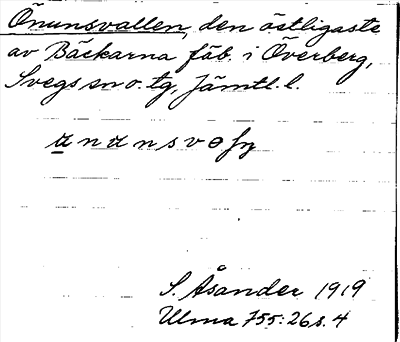 Önunsvallen, den östligaste
av Bäckarna fäb. i Överberg,
Svegs sn o. tg, Jämtl. l.
S. Åsander 1919
Ulma 755:26 s. 4